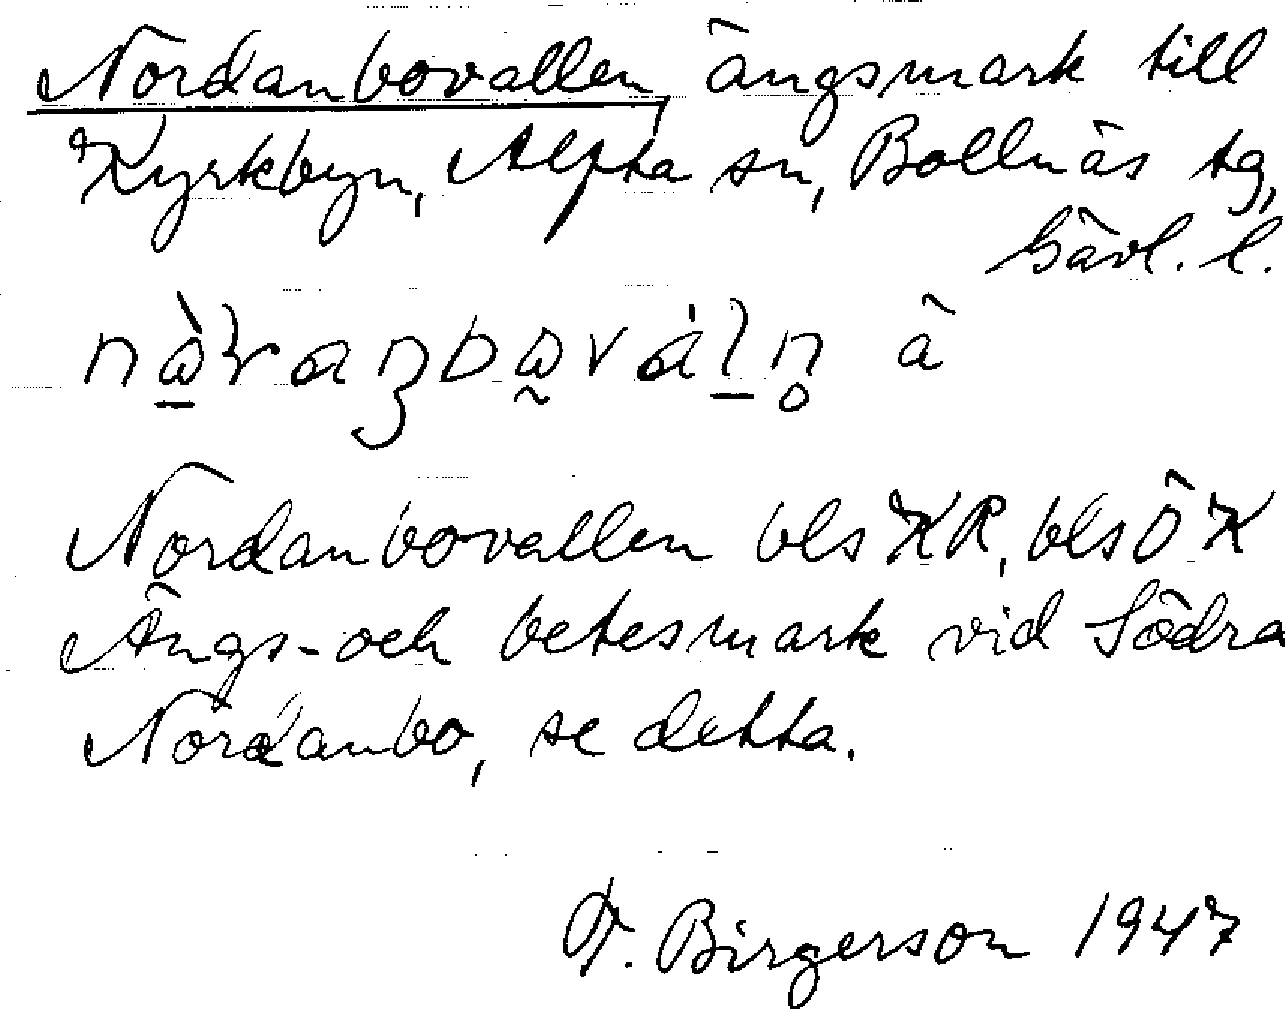 Nordanbovallen, ängsmark till
Kyrkbyn, Alfta sn, Bollnäs tg,
Gävl. l.
å
Nordanbovallen bls KR, bls ÖK
Ängs- och betesmark vid Södra
Nordanbo, se detta.
F. Birgerson 1947